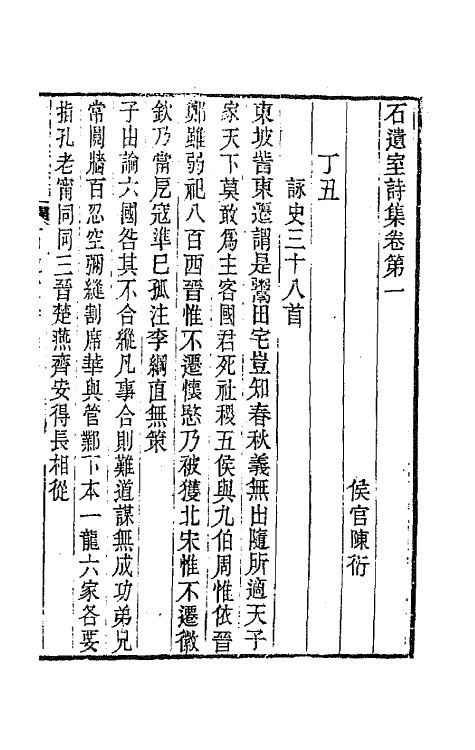 石遺室詩集卷第一
侯官陳衍
丁丑
詠史三十八首
東坡訾東遷謂是鬻田宅豈知春秋義無出隨所適天子
家天下莫敢爲主客國君死社稷五侯與九伯周惟依晉
鄭雖弱祀八百西晉惟不遷懷愍乃被獲北宋惟不遷徽
欽乃當戹寇準已孤注李綱直無策
子由論六國咎其不合縱凡事合則難道謀無成功弟兄
常鬩牆百忍空彌縫割席華與管鄴下本一龍六家各要
指孔老甯同同三晉楚燕齊安得長相從